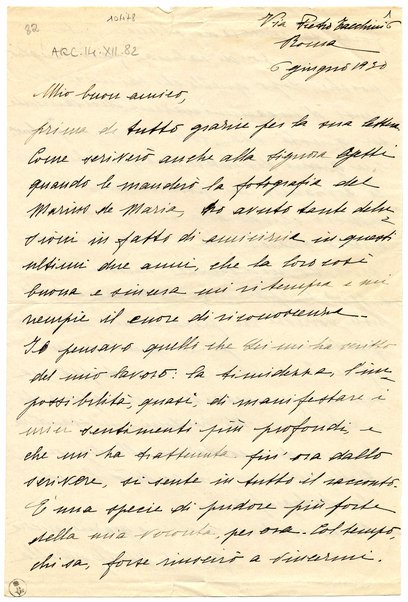 82
10478
ARC.14-XII.82
Via Pietro Tacchini 6
Roma
6 giugno 1930
Mio buon amico,
prima di tutto grazie per la sua lettera.
Come scriverò anche alla signora
quando le manderò la fotografia del
Marius de Maria, ho avuto tante delu-
sioni in fatto di amicizia in questi
ultimi due anni, che la loro così
buona e sincera mi ritempra e mi
riempie il cuore di riconoscenza.
Io pensavo quello che Lei mi ha scritto
del mio lavoro: la timidezza, l'im-
possibilità, quasi, di manifestare i
miei sentimenti più profondi, e
che mi ha trattenuta fin'ora dallo
scrivere, si sente in tutto il racconto.
È una specie di pudore più forte
della mia volontà, per ora. Col tempo,
chi sa, forse riuscirò a vincermi.